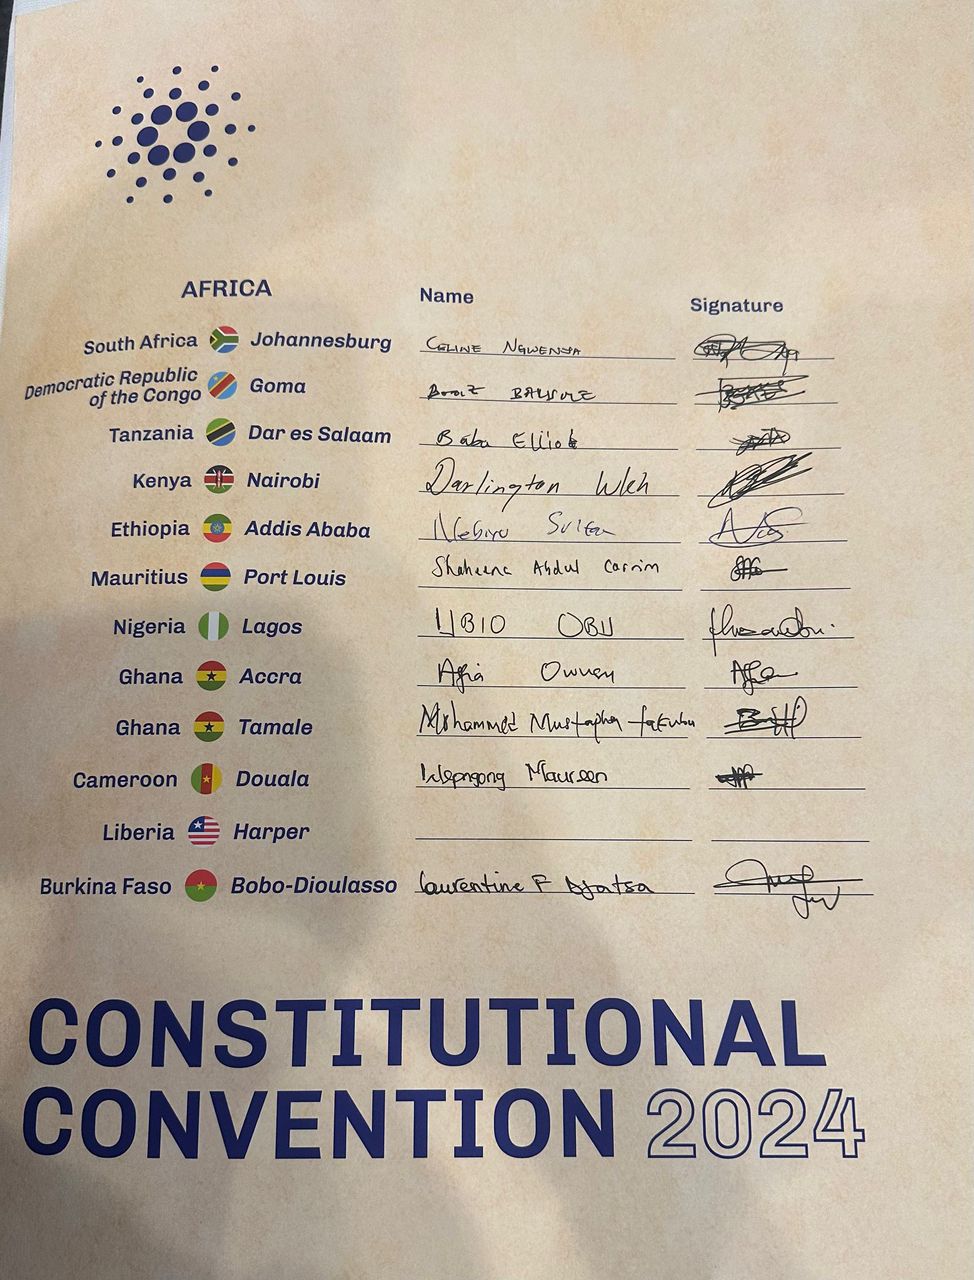 AFRICA Name Signature
South Africa Johannesburg CELINE NGWENYA
Democratic Republic
of the Congo Goma
Tanzania Dar es Salaam Baba Elliot
Kenya Nairobi Darlington Wleh
Ethiopia Addis Ababa Nebiyu Sultan
Mauritius Port Louis Shaheene Abdul Carrim
Nigeria Lagos UBIO OBU
Ghana Accra Afia Owusu
Ghana Tamale Mohammed Mustapha
Cameroon Douala Wepngong Maureen
Liberia Harper
Burkina Faso Bobo-Dioulasso Laurentine F
CONSTITUTIONAL
CONVENTION 2024